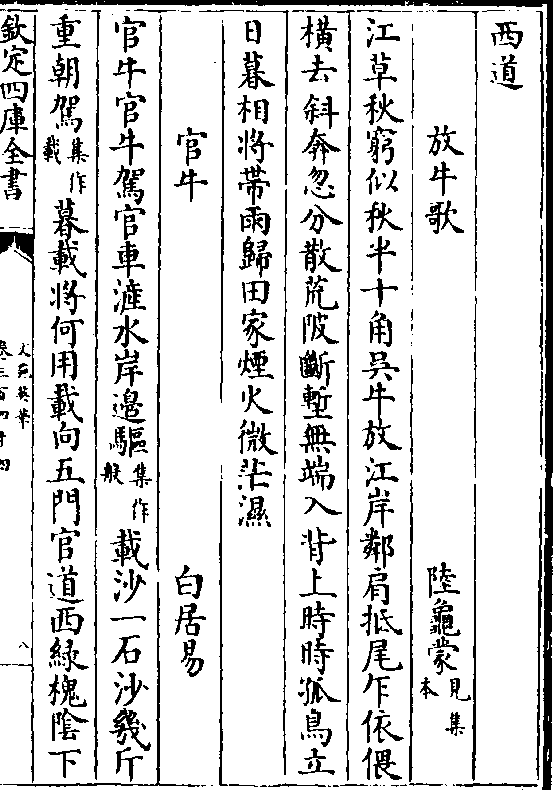 西道
放牛歌 陸龜蒙見集本
江草秋窮似秋半十角吳牛放江岸鄰肩抵尾乍依偎
橫去斜奔忽分散荒陂斷塹無端入背上時時孤鳥立
日暮相將帶雨歸田家煙火微茫濕
官牛 白居易
官牛官牛駕官車滻水岸邉驅集作般載沙一石沙幾斤
重朝駕集作載暮載將何用載向五門官道西緑槐陰下
欽定四庫全書
文苑英華
卷三百四十四
八